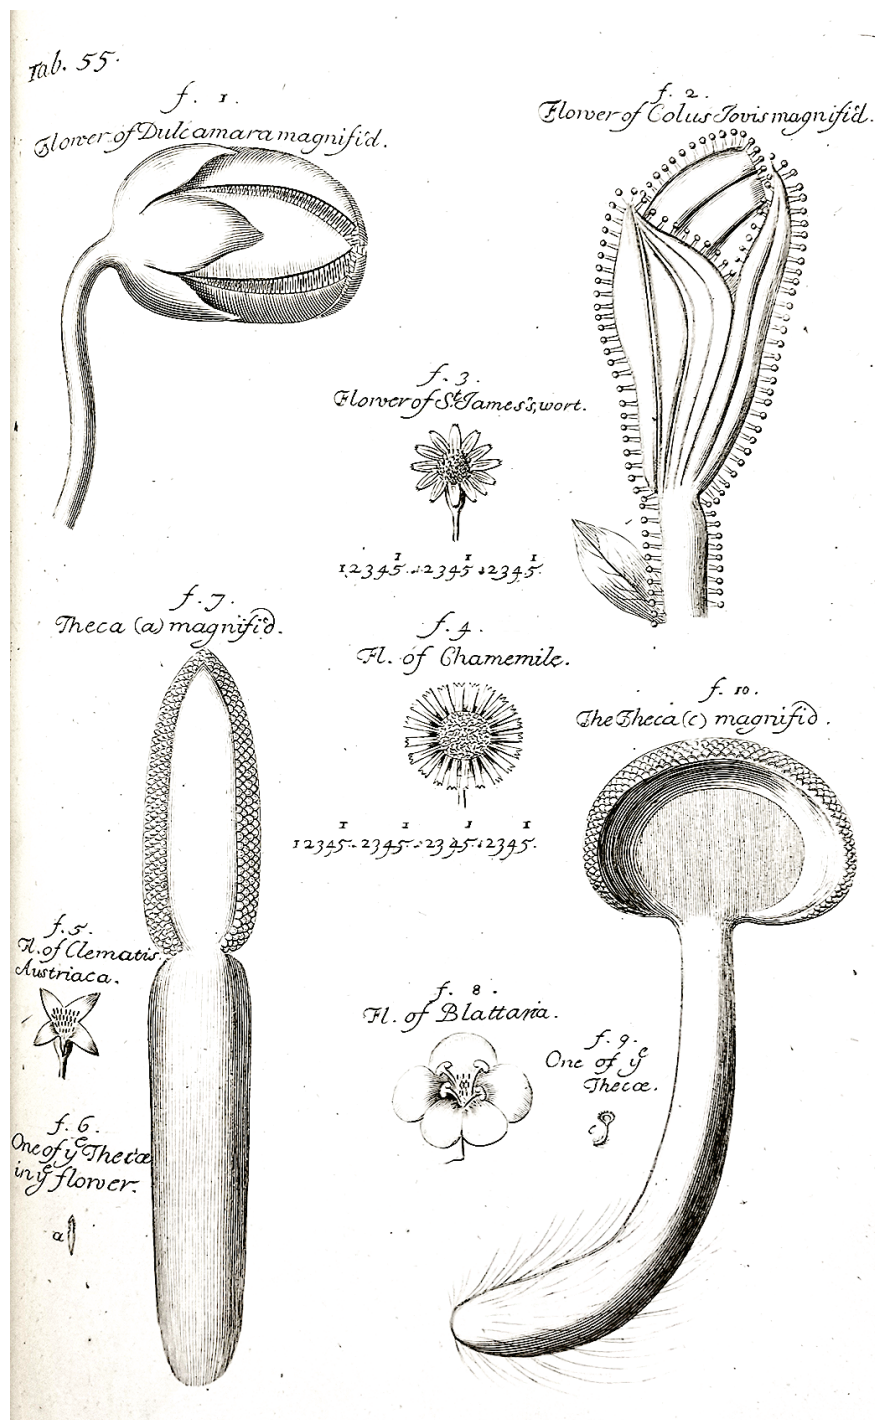 Tab. 55.
f. 1.
Flower of Dulcamara magnifi'd.
f. 2.
Flower of Colus Jovis magnifi'd.
f. 3.
Flower of St. James's, wort.
1 1 1
12345.12345.12345.
f. 7.
Theca (a) magnifi'd.
f. 4.
Fl. of Chamemile.
f. 10.
The Theca (c) magnifi'd.
1 1 1 1
12345.2345.2345.2345.
f. 5.
Fl. of Clematis
Austriaca.
f. 8.
Fl. of Blattaria.
f. 9.
One of ye
Thecæ.
f. 6.
One of ye Thecæ
in ye flower.
c
a